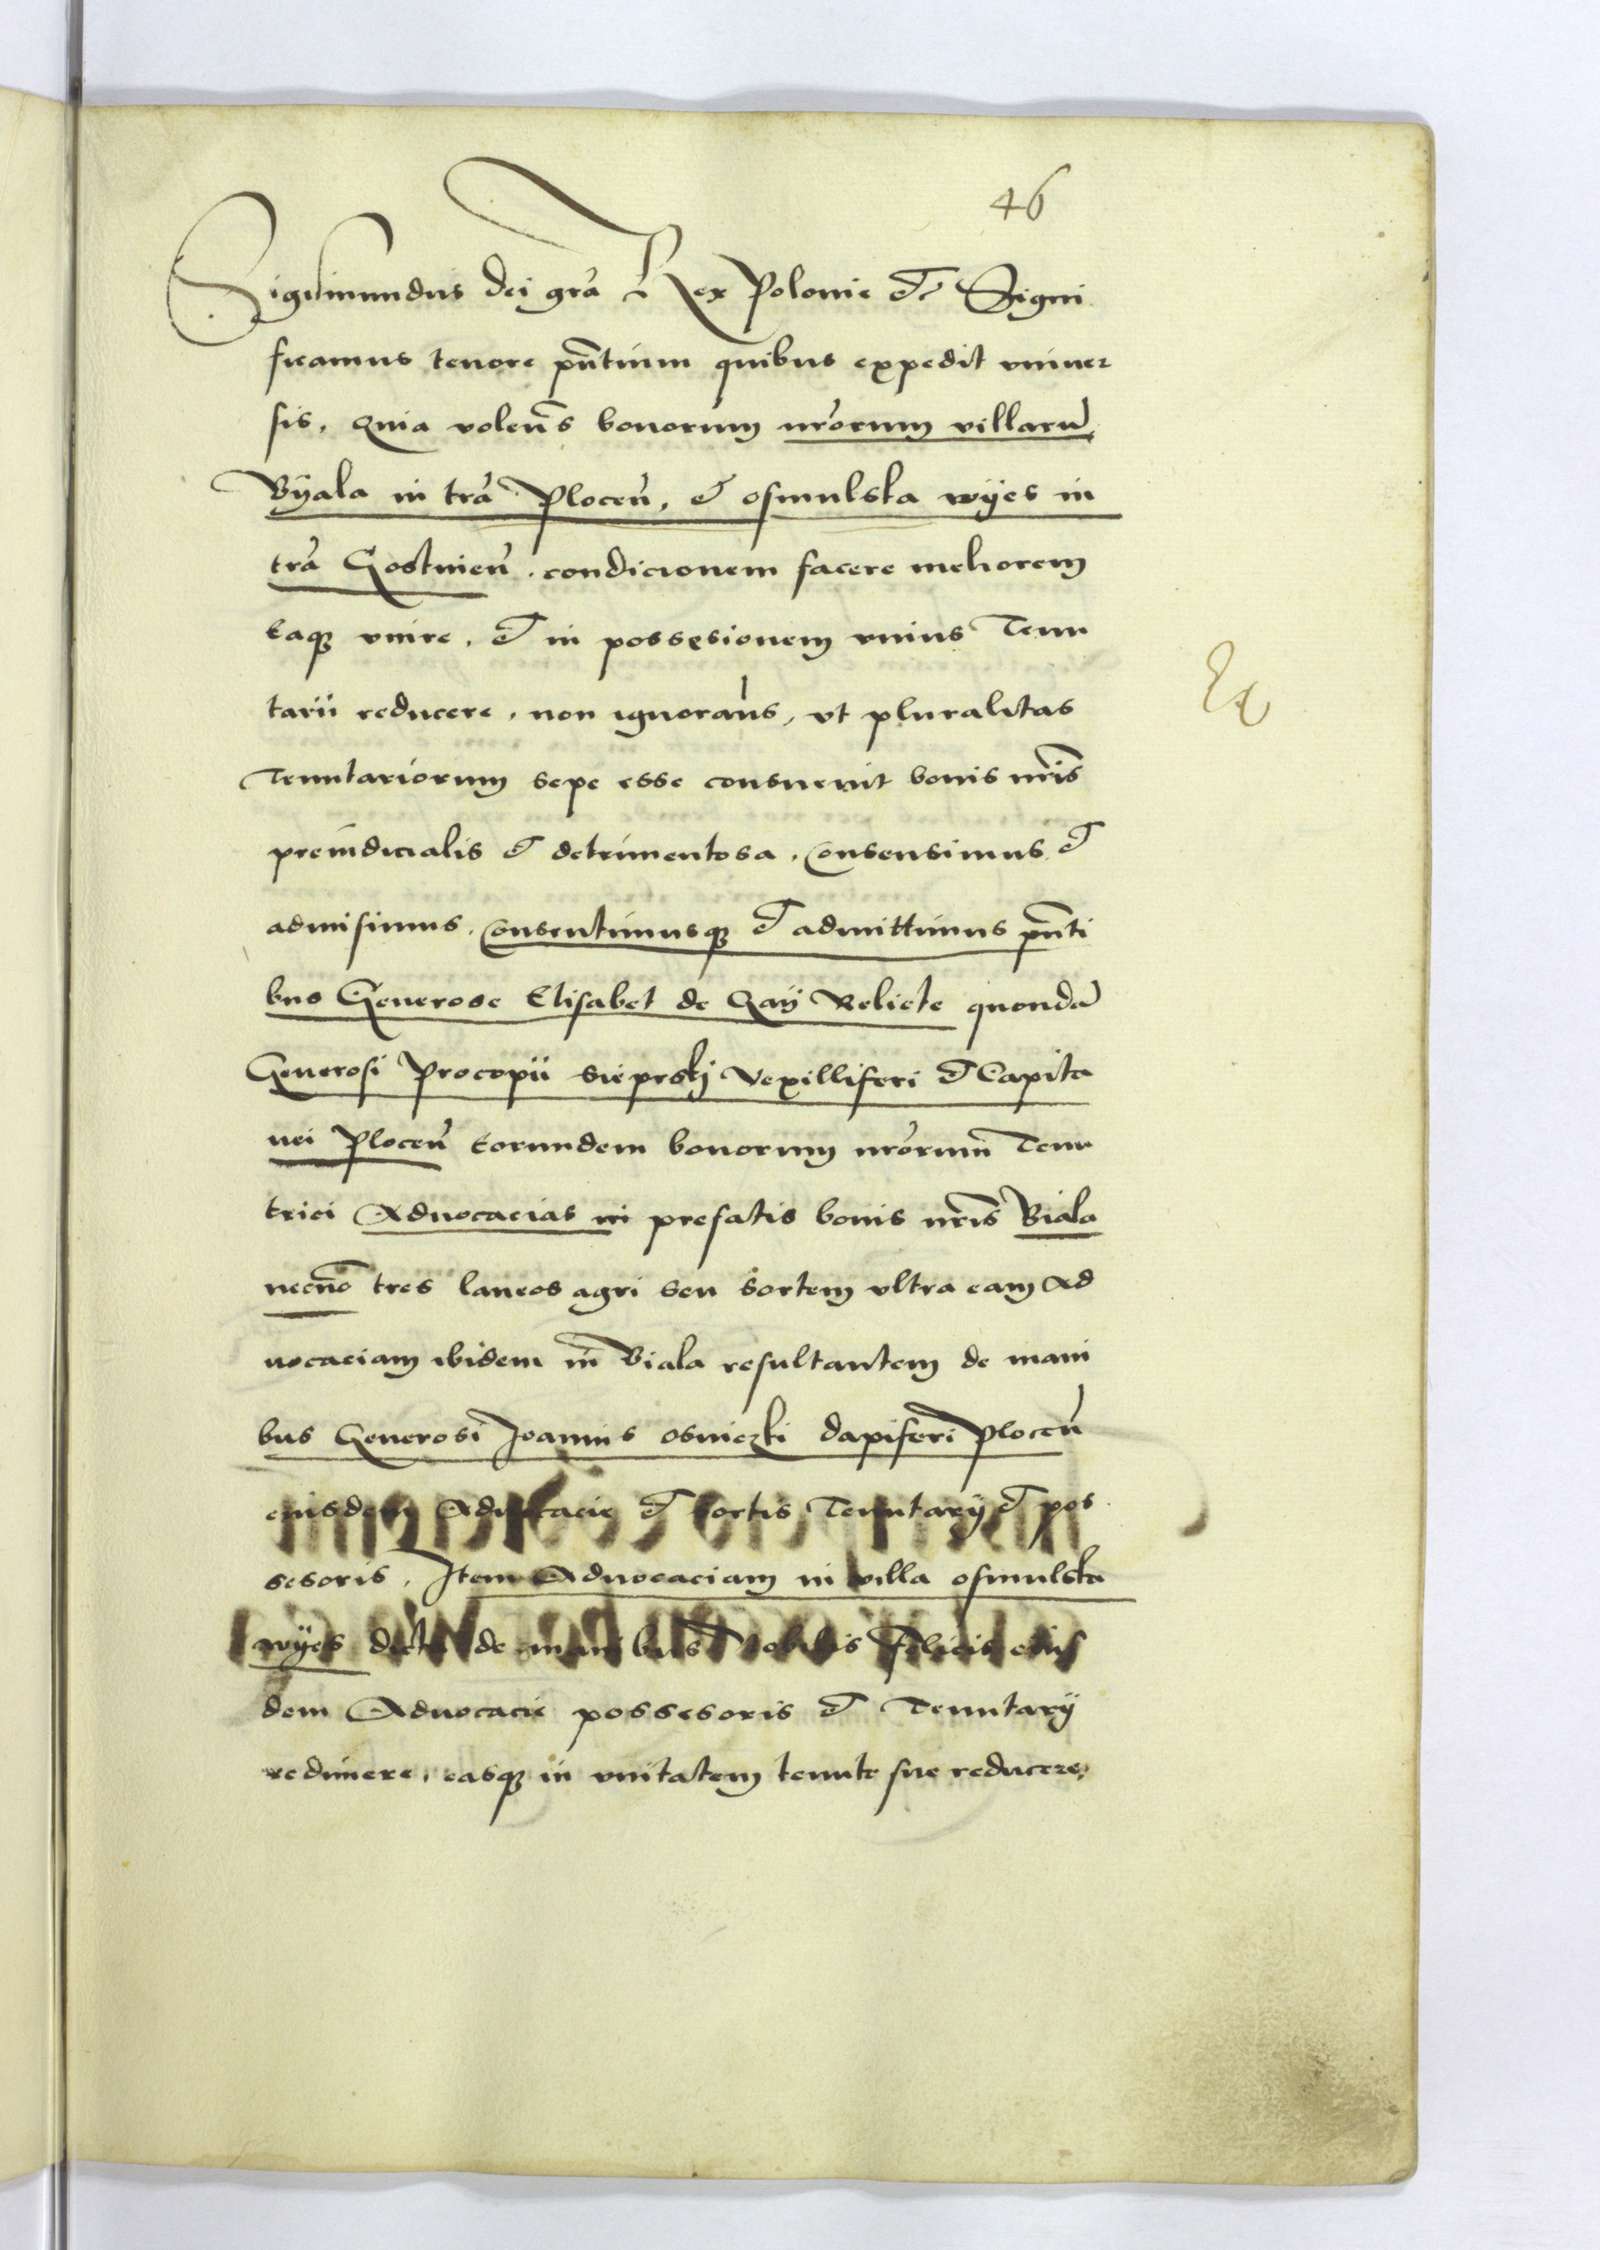 46
Sigismundus dei gra͂ Rex Polonie &c Signi
ficamus tenore pñtium quibus expedit vniuer
sis. Quia volen͂s bonorum nr͂orum villaru͂
Byala in tra͂ Plocen͂, & osmulska wÿes in
tra͂ Gostinien͂. condicionem facere meliorem
Eaqꝫ vnire. & in possesionem vnius Tenu
tarii reducere. non ignoran͂s, vt pluralitas
Tenutariorum sepe esse consueuit bonis nr͂is
preiudicialis & detrimentosa. Consensimus &
admisimus. Consentimusqꝫ & admittimus pñti
bus Generose Elisabet de Gaÿ Relicte quonda͂
Generosi Procopii sieprskj Vexilliferi & Capita
nei Plocen͂ Eorundem bonorum nr͂orum Tenu
trici Aduocacias in prefatis bonis nr͂is Biala
necno͂ tres laneos agri seu sortem vltra eam Ad
uocaciam ibidem in Biala resultantem de mani
bus Generosi Joannis osniczki dapiferi Plocen͂
eiusdem Aduocacie & sortis Tenutarÿ & pos
sesoris. Item Aduocaciam in villa osmulska
wÿes dicta de manibus Nobilis Felicis eius
dem Aduocacie possesoris & Tenutarÿ
redimere. easqꝫ in vnitatem tenute sue reducere,